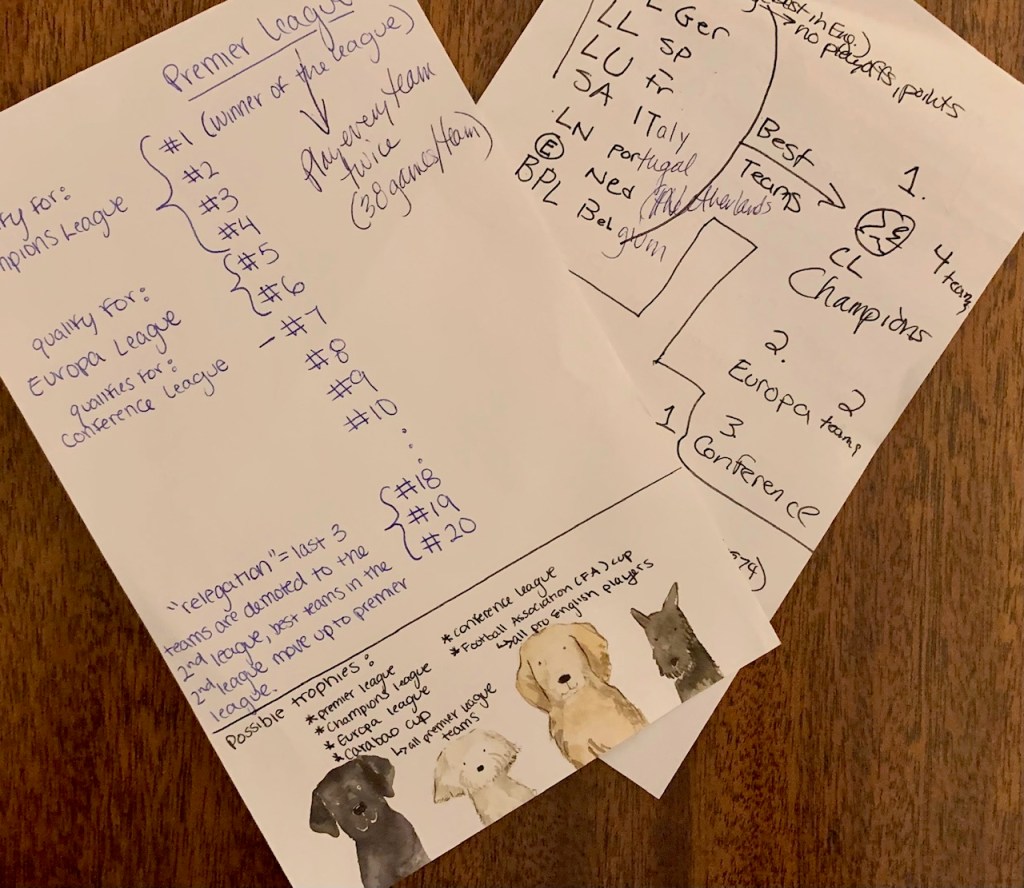 Premier League
#1 (winner of the league)
play every team
twice
(38 games/team)
#2
#3
#4
#5
#6
- #7
#8
#9
#10
#18
#19
#20
for:
League
qualify for:
Europa League
qualifies for:
conference League
"relegation" = last 3
teams are demoted to the
2nd league, best teams in the
2nd league move up to premier
league.
Possible trophies:
* premier league
* Champions league
* Europa league
* Carabao cup
↳ all premier league
teams
* conference league
* Football Association (FA) cup
↳ all pro English players
Ger
LL SP
LU Fr
SA ITaly
LN portugal
(E) Ned (The Netherlands
BPL Belgium
in Eng.)
→ no playoffs, points
Best
Teams
1.
CL
Champions
4 teams
2.
Europa
2
teams
1
3
Conference